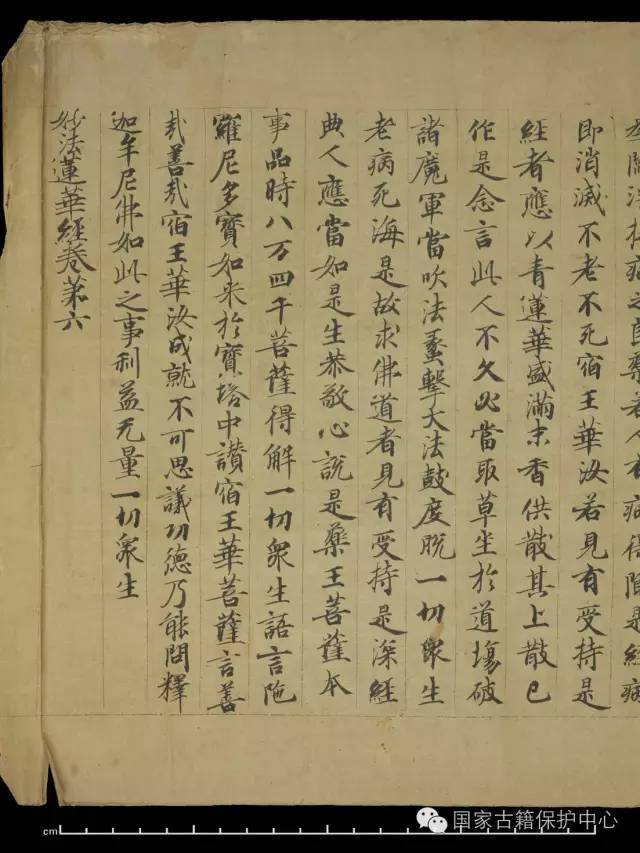 為閻浮提病之良藥若人有病得聞是經病
即消滅不老不死宿王華汝若見有受持是
經者應以青蓮華盛滿末香供散其上散已
作是念言此人不久必當取草坐於道場破
諸魔軍當吹法蠡擊大法鼓度脫一切眾生
老病死海是故求佛道者見有受持是深經
典人應當如是生恭敬心說是藥王菩薩本
事品時八万四千菩薩得解一切眾生語言陁
羅尼多寶如来於寶塔中讚宿王華菩薩言善
哉善哉宿王華汝成就不可思議功德乃能問釋
迦牟尼佛如此之事利益无量一切眾生
妙法蓮華經卷第六
cm
国家古籍保护中心